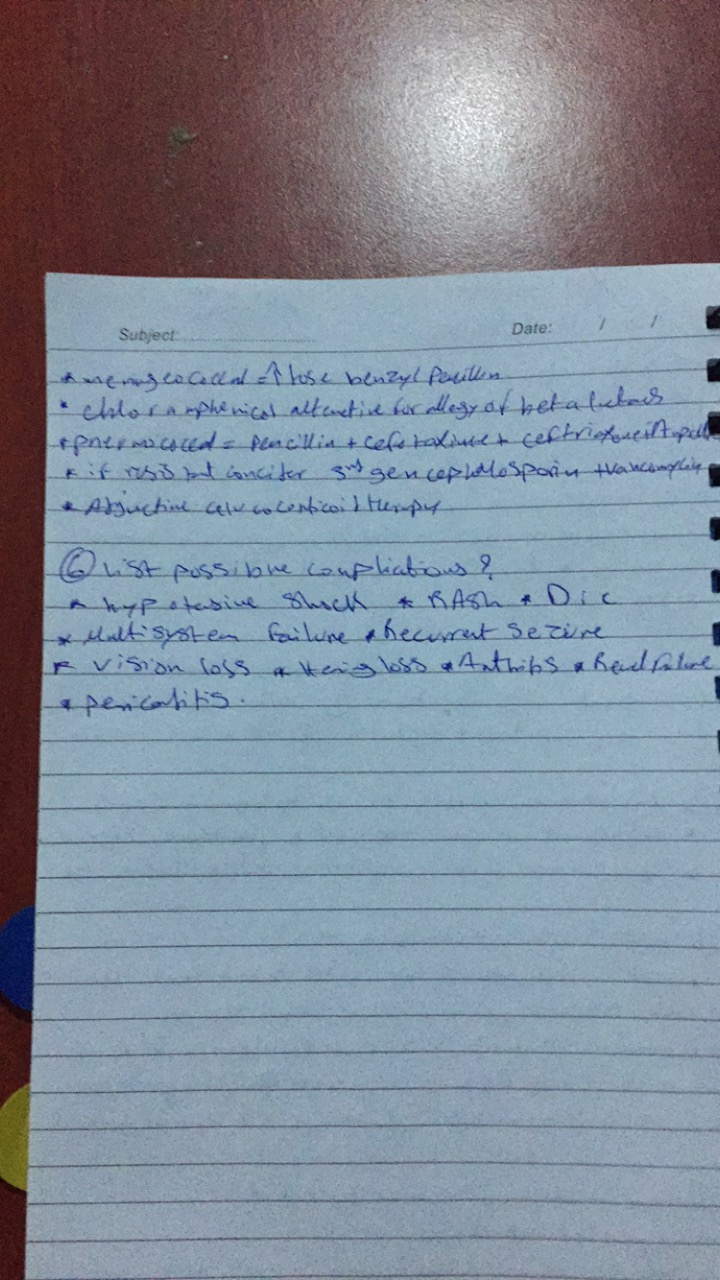 Subject: Date: / /
* meningeococcal = ↑ dose benzyl penicillin
* chloramphenicol altenative for allegy of beta lactams
* pneumococcal = pencillin + cefotaxime + ceftriaxone
* if resistant concider 3rd gen cephalosporin + vancomycin
* Adjuctive glucocorticoid therapy
⑥ List possible compliations?
* hypotesive Shock * RASh * DIC
* Multisystem failure * Recurrent Sezure
* Vision loss * Hering loss * Arthrits * Renal failure
* pericarditis.